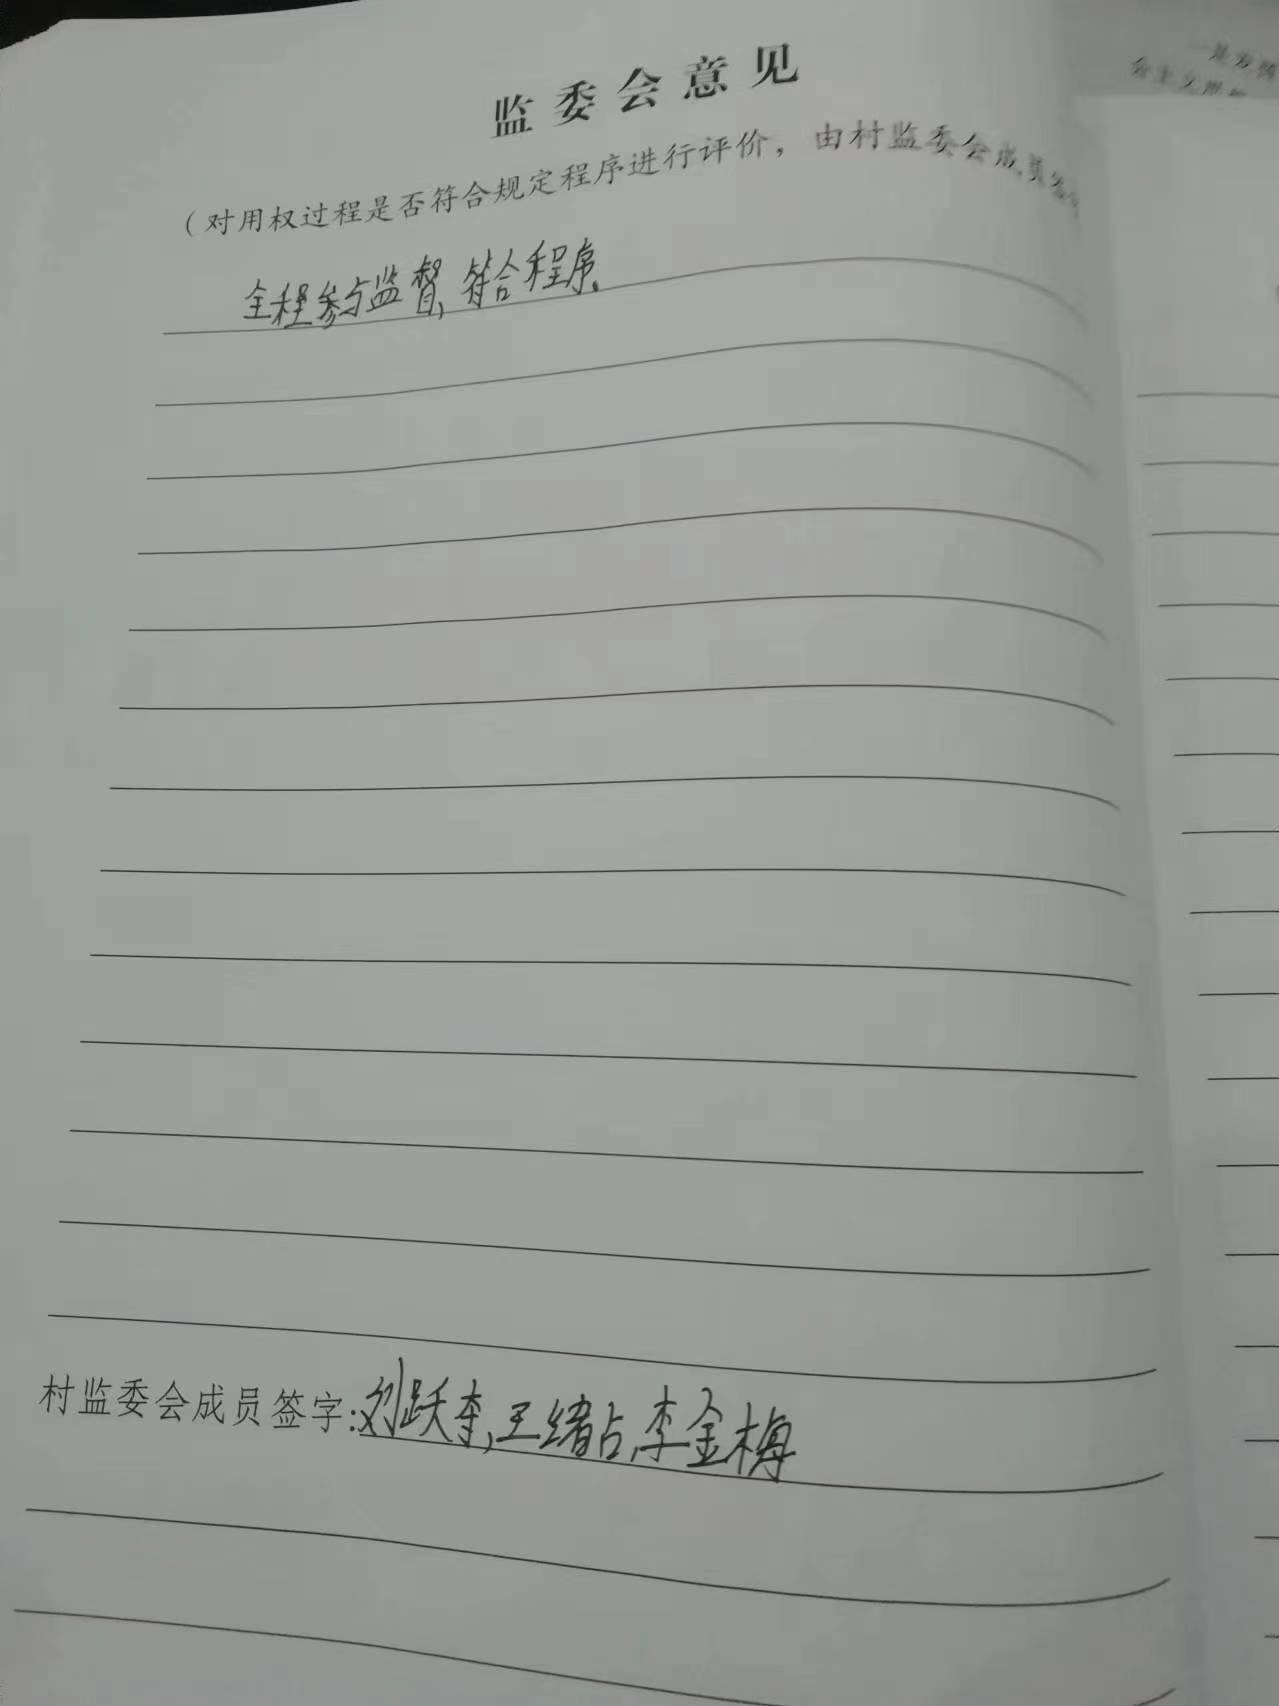 监委会意见
(对用权过程是否符合规定程序进行评价，由村监委会成员
全程参与监督,符合程序.
村监委会成员签字:刘跃奎,王绪占,李金梅
一是发
会主义思